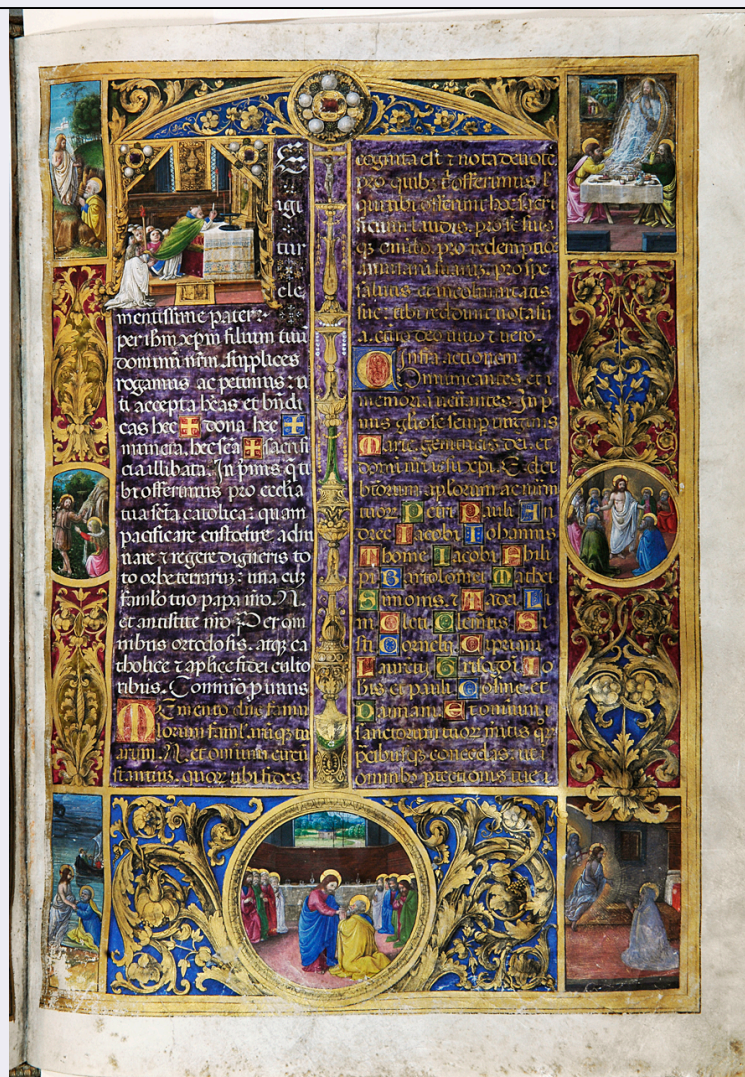 E
igi
tur
cle
mentissime pater:
per ihm xpm filium tuū
dominū nrm. supplices
rogamus ac petimus: u
ti accepta hēas et bn̄di
cas hec ✠ dona. hec ✠
munera. hec sēa ✠ sacrifi
cia illibata. In p̄mis q̄ ti
bi offerimus pro ecclīa
tua sēta catolica: quam
pacificare custodire adiu
nare ⁊ regere digneris to
to orbe terraruꝫ: una cuꝫ
famlo tuo papa nro .N.
et antistite nro .D et om
nibus ortodosis. atqꝫ ca
tholice ⁊ aplīce fidei culto
ribus.
Memento dn̄e famu
lorum famlaruqꝫ tu
arum .N. et omniū circū
stantiuꝫ. quoꝝ tibi fides
cognita est ⁊ nota deuotō.
pro quibꝫ t̄ offerimus l̄
qui tibi offerunt hoc sacri
ficium laudis. pro se suisqꝫ
omībꝫ. pro redemptiōe
animarū suaruꝫ. pro spe
salutis et incolumitatis
sue: tibi reddunt uota su
a. eterno deo uiuo ⁊ uero.
Infra actionem
Communicantes et
memoria uenerantes. In p̄
mis gl̄iose semp̄ uirginis
Marie genitricis dei. et
domini nr̄i ihu xpi. Sed et
btōrum aplōrum ac m̄rm
tuoꝝ Petri Pauli An
dree Iacobi Iohannis
Thome Iacobi Phili
pi Bartolomei Mathei
Simonis. ⁊ Tadei Li
ni Cleti Clemētis Si
sti Cornelij Cipriani
Laurētij Grisogōi Io
hīs et pauli Cosme et
Damiani Et omniū
sanctorum tuoꝝ m̄itis q̄ꝫ
p̄cibusqꝫ concedas. ut ī
omnibꝫ protectionis tue